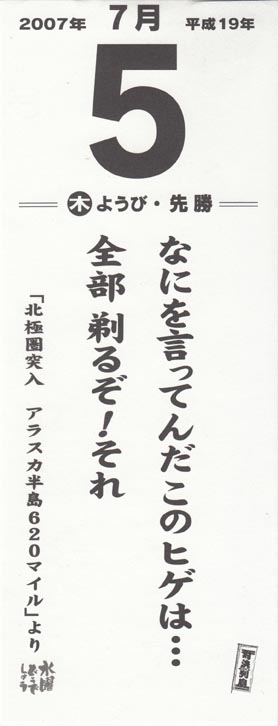 2007年 7月 平成19年
5
木 ようび・先勝
なにを言ってんだこのヒゲは…
全部 剃るぞ！それ
「北極圏突入 アラスカ半島620マイル」より
水曜
どうで
しょう